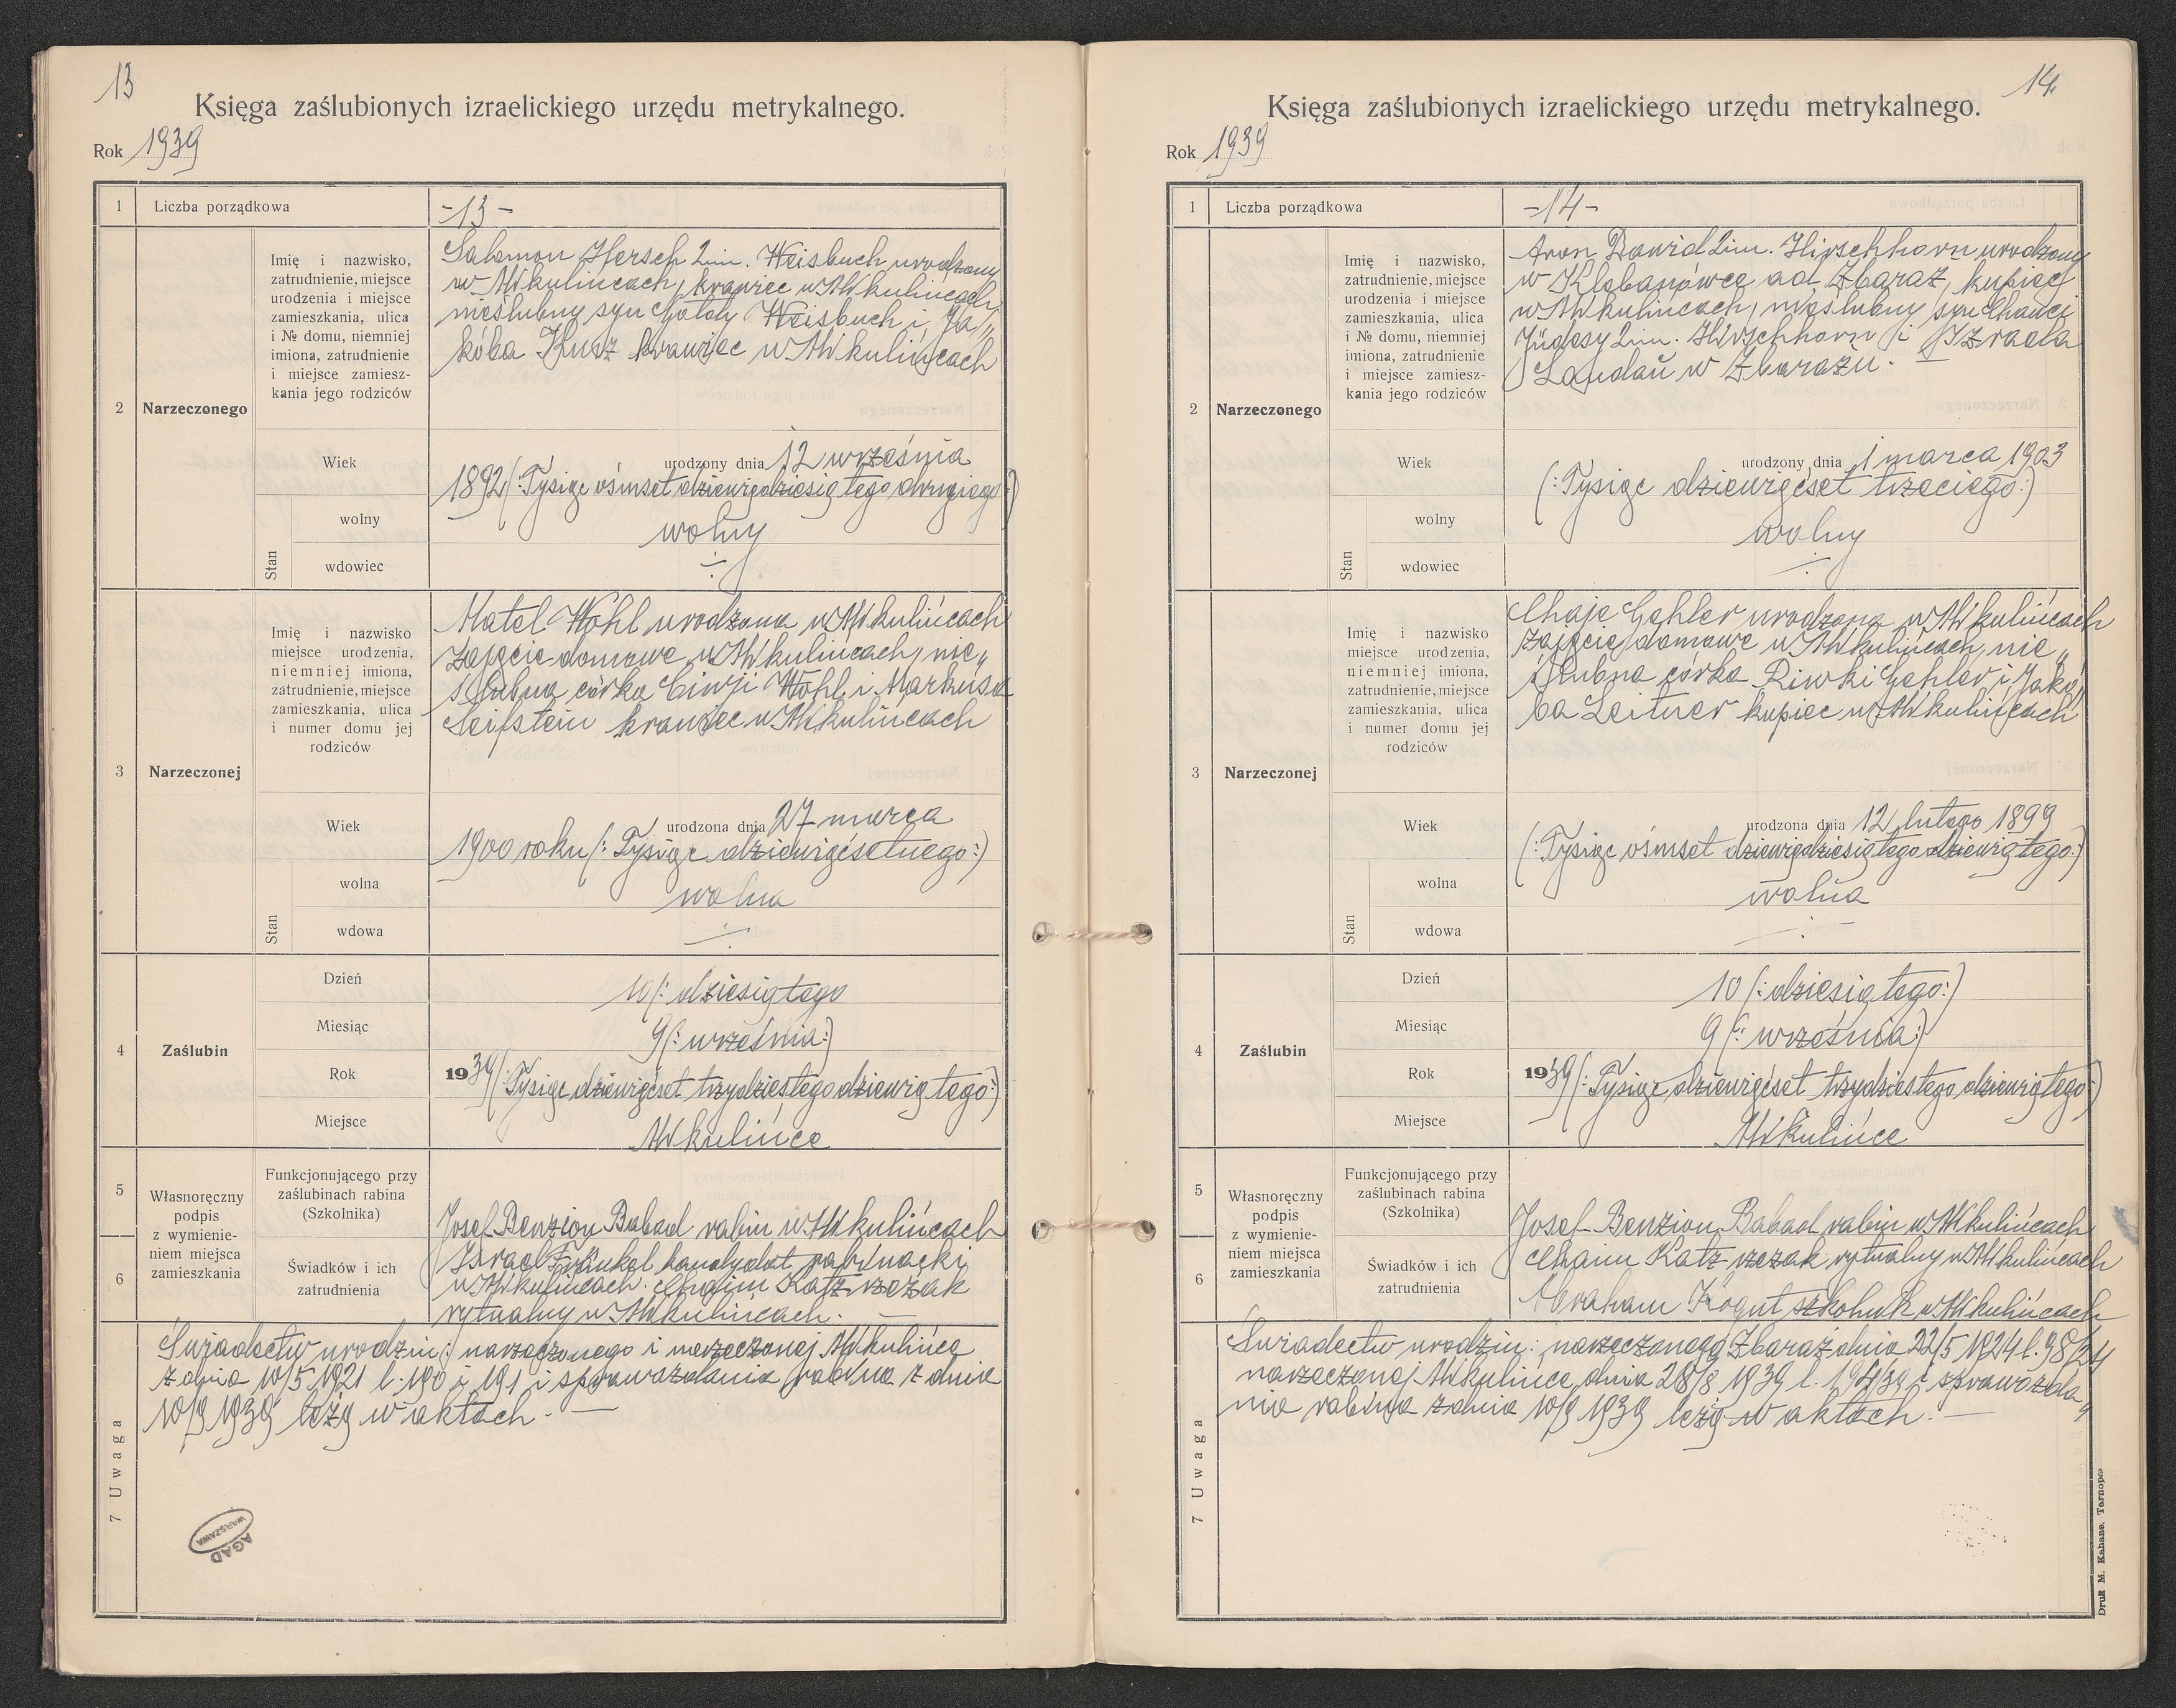 13
Księga zaślubionych izraelickiego urzędu metrykalnego.
Rok 1939
1 Liczba porządkowa -13-
2 Narzeczonego
Imię i nazwisko,
zatrudnienie, miejsce
urodzenia i miejsce
zamieszkania, ulica
i № domu, niemniej
imiona, zatrudnienie
i miejsce zamiesz-
kania jego rodziców
Salamon Hersch 2im. Weisbuch urodzony
w Mikulińcach, krawiec w Mikulińcach,
nieślubny syn Gołdy Weisbuch i Ja„
kóba Kusz krawiec w Mikulińcach
Wiek urodzony dnia 12 września
1892 (: Tysiąc ośmset dziewięćdziesiątego drugiego :)
Stan
wolny wolny
wdowiec
3 Narzeczonej
Imię i nazwisko
miejsce urodzenia,
niemniej imiona,
zatrudnienie, miejsce
zamieszkania, ulica
i numer domu jej
rodziców
Matel Wohl urodzona w Mikulińcach
zajęcie domowe w Mikulińcach, nie„
ślubna córka Ciwji Wohl i Markusa
Seifstein krawiec w Mikulińcach
Wiek urodzona dnia 27 marca
1900 roku (: Tysiąc dziewięćsetnego :)
Stan
wolna wolna
wdowa
4 Zaślubin
Dzień 10 (: dziesiątego
Miesiąc 9 (: września :)
Rok 1939 (: Tysiąc dziewięćset trzydziestego dziewiątego :)
Miejsce Mikulińce
5
6
Własnoręczny
podpis
z wymienie-
niem miejsca
zamieszkania
Funkcjonującego przy
zaślubinach rabina
(Szkolnika)
Josef Benzion Babad rabin w Mikulińcach
Świadków i ich
zatrudnienia
Israel Fränkel kandydat rabinacki
w Mikulińcach. Chaim Katz rzezak
rytualny w Mikulińcach. —
7 Uwaga
Świadectw urodzin: narzeczonego i narzeczonej Mikulińce
z dnia 10/5 1921 l. 190 i 191 i sprawozdania rabina z dnia
10/9 1939 leżą w aktach. —
AGAD
WARSZAWA
14
Księga zaślubionych izraelickiego urzędu metrykalnego.
Rok 1939
1 Liczba porządkowa -14-
2 Narzeczonego
Imię i nazwisko,
zatrudnienie, miejsce
urodzenia i miejsce
zamieszkania, ulica
i № domu, niemniej
imiona, zatrudnienie
i miejsce zamiesz-
kania jego rodziców
Aron Dawid 2im. Hirschhorn urodzony
w Klebanówce ad Zbaraż, kupiec
w Mikulińcach, nieślubny syn Chanci
Judesy 2im. Hirschhorn i Izraela
Landau w Zbarażu. —
Wiek urodzony dnia 1 marca 1903
(: Tysiąc dziewięćset trzeciego :)
Stan
wolny wolny
wdowiec
3 Narzeczonej
Imię i nazwisko
miejsce urodzenia,
niemniej imiona,
zatrudnienie, miejsce
zamieszkania, ulica
i numer domu jej
rodziców
Chaje Gehler urodzona w Mikulińcach
zajęcie domowe w Mikulińcach, nie„
ślubna córka Riwki Gehler i Jakó„
ba Leitner kupiec w Mikulińcach
Wiek urodzona dnia 12 lutego 1899
(: Tysiąc ośmset dziewięćdziesiątego dziewiątego :)
Stan
wolna wolna
wdowa
4 Zaślubin
Dzień 10 (: dziesiątego :)
Miesiąc 9 (: września :)
Rok 1939 (: Tysiąc dziewięćset trzydziestego dziewiątego :)
Miejsce Mikulińce
5
6
Własnoręczny
podpis
z wymienie-
niem miejsca
zamieszkania
Funkcjonującego przy
zaślubinach rabina
(Szkolnika)
Josef Benzion Babad rabin w Mikulińcach
Świadków i ich
zatrudnienia
Chaim Katz rzezak rytualny w Mikulińcach
Abraham Kogut szkolnik w Mikulińcach
7 Uwaga
Świadectw urodzin: narzeczonego Zbaraż dnia 22/5 1924 l. 98/24
narzeczonej Mikulińce dnia 28/8 1939 l. 194/39 i sprawozda„
nia rabina z dnia 10/9 1939 leżą w aktach. —
Druk M. Kahane, Tarnopol